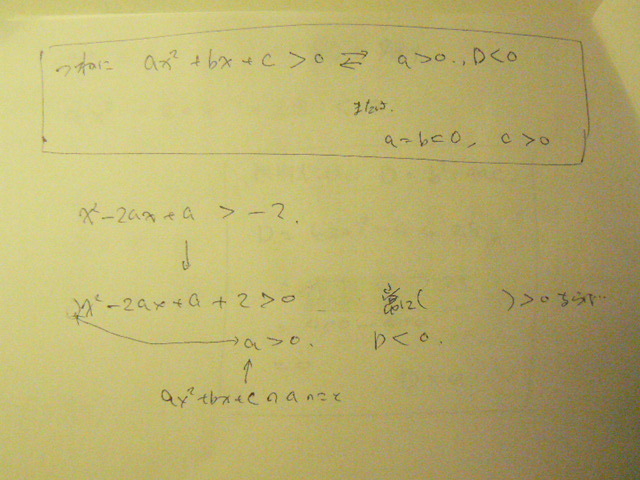 つねに ax²+bx+c>0 ⇄ a>0, D<0
または
a=b=0, c>0
x²-2ax+a > -2.
↓
x²-2ax+a+2>0 常に( )>0 ならば…
a>0. D<0.
↑
ax²+bx+cのaのこと